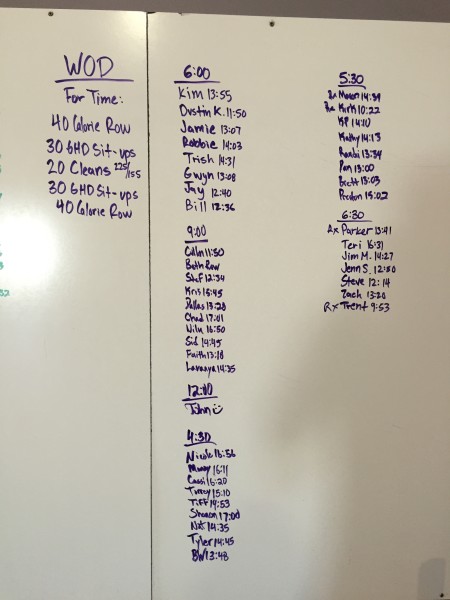 WOD
For Time:
40 Calorie Row
30 GHD Sit-ups
20 Cleans 125/155
30 GHD Sit-ups
40 Calorie Row
6:00
Kim 13:55
Dustin K. 11:50
Jamie 13:07
Robbie 14:03
Trish 14:31
Gwyn 13:08
Jay 12:40
Bill 12:36
9:00
Collin 11:50
Beth Row
Stef 12:34
Kris 15:45
Dallas 13:28
Chad 17:01
16:50
Sid 14:45
Faith 13:18
Lavanya 14:35
12:00
John
4:30
Nicole 16:56
16:11
Cassi 16:20
15:10
Tiff 14:53
Shannon 17:00
Nat 14:35
Tyler 14:45
BW 13:48
5:30
Rx 14:39
Rx Kirk 10:22
KP 14:10
Kathy 14:13
13:34
13:00
Brett 13:03
15:02
6:30
Rx Parker 13:41
Teri 16:31
Jim M. 14:27
Jenn S. 12:50
Steve 12:14
Zach 13:20
Rx Trent 9:53